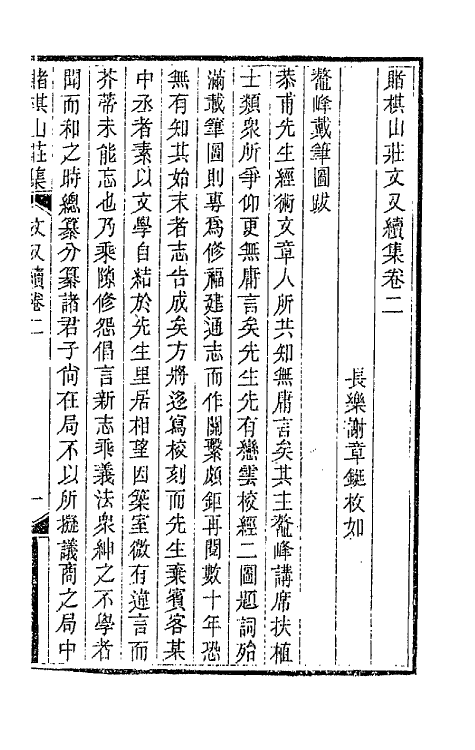 賭棋山莊文又續集卷二
長樂謝章鋌枚如
鼇峰載筆圖跋
恭甫先生經術文章人所共知無庸言矣其主鼇峰講席扶植
士類衆所爭仰更無庸言矣先生先有戀雲校經二圖題詞殆
滿載筆圖則專爲修福建通志而作關繫頗鉅再閱數十年恐
無有知其始末者志告成矣方將迻寫校刻而先生棄賓客某
中丞者素以文學自結於先生里居相望因築室微有違言而
芥蒂未能忘也乃乘隙修怨倡言新志乖義法衆紳之不學者
聞而和之時總纂分纂諸君子尙在局不以所擬議商之局中
賭棋山莊集 文又續卷二 一